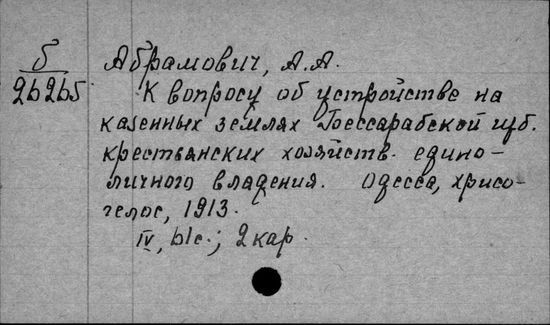 Б
26265
Абрамович, А.А.
К вопросу об устройстве на
казенных землях Бессарабской губ.
крестьянских хозяйств. едино-
личного владения. Одесса, Хрисо-
гелос, 1913.
IV, 61с.; 2 кар.